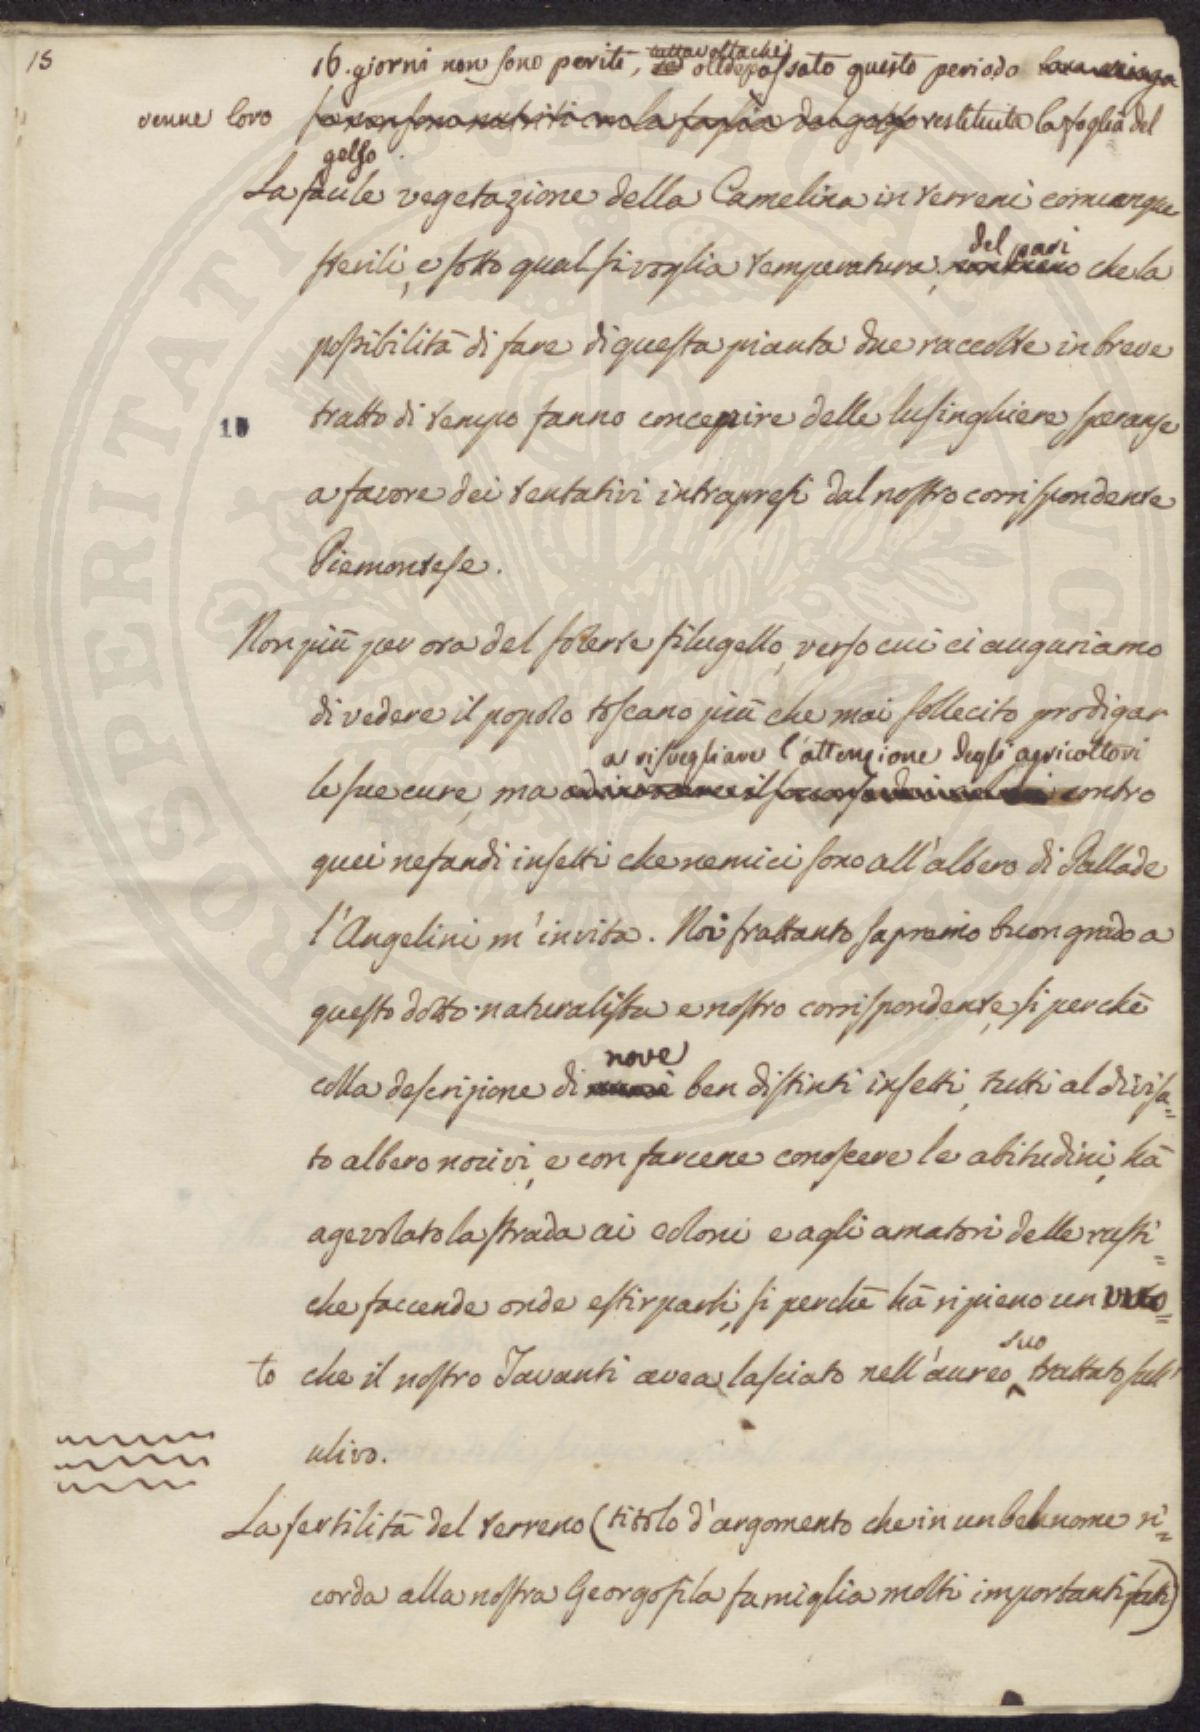 15
16. giorni non sono periti, tuttavoltache oltrepassato questo periodo
venne loro restituita la foglia del
gelso.
La facile vegetazione della Camelina in terreni comunque
sterili, e sotto qualsivoglia temperatura, del pari che la
possibilità di fare di questa pianta due raccolte in breve
tratto di tempo fanno concepire delle lusinghiere speranze
15
a favore dei tentativi intrapresi dal nostro corrispondente
Piemontese.
Non più per ora del solerte filugello, verso cui ci auguriamo
di vedere il popolo toscano più che mai sollecito prodigar
a risvegliare l'attenzione degli agricoltori
le sue cure, ma contro
quei nefandi insetti che nemici sono all'albero di Pallade
l'Angelini m'invita. Noi frattanto sapremo buon grado a
questo dotto naturalista e nostro corrispondente, si perchè
colla descrizione di nove ben distinti insetti, tutti al divisa=
to albero nocivi, e con farcene conoscere le abitudini, hà
agevolato la strada ai coloni e agli amatori delle rusti=
che faccende onde estirparli, si perchè hà ripieno un vuo=
to che il nostro Tavanti avea lasciato nell'aureo suo trattato sull'
ulivo.
La fertilità del terreno (titolo d'argomento che in un bel nome ri=
corda alla nostra Georgofila famiglia molti importanti fatti)
PROSPERITATI PUBLICAE AUGENDAE